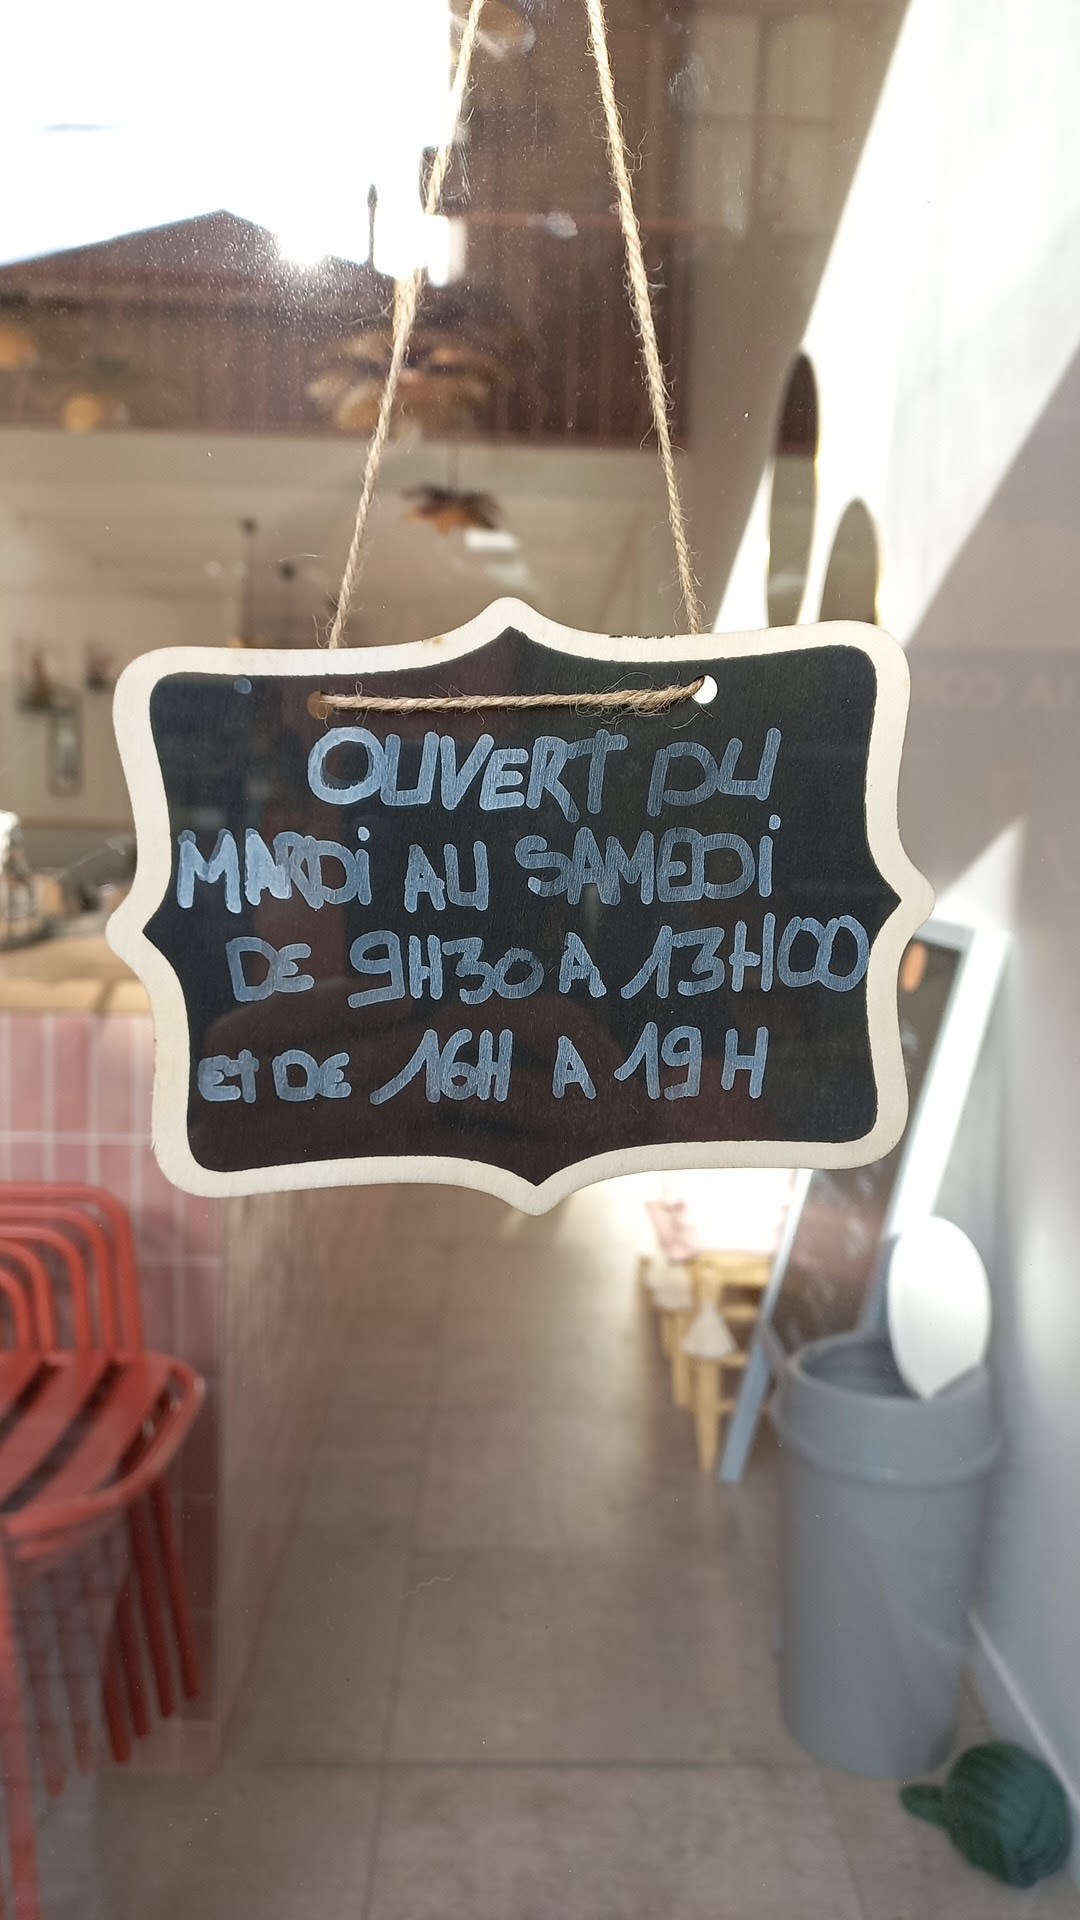 OUVERT DU
MARDi AU SAMEDi
DE 9H30 A 13H00
Et DE 16H A 19H